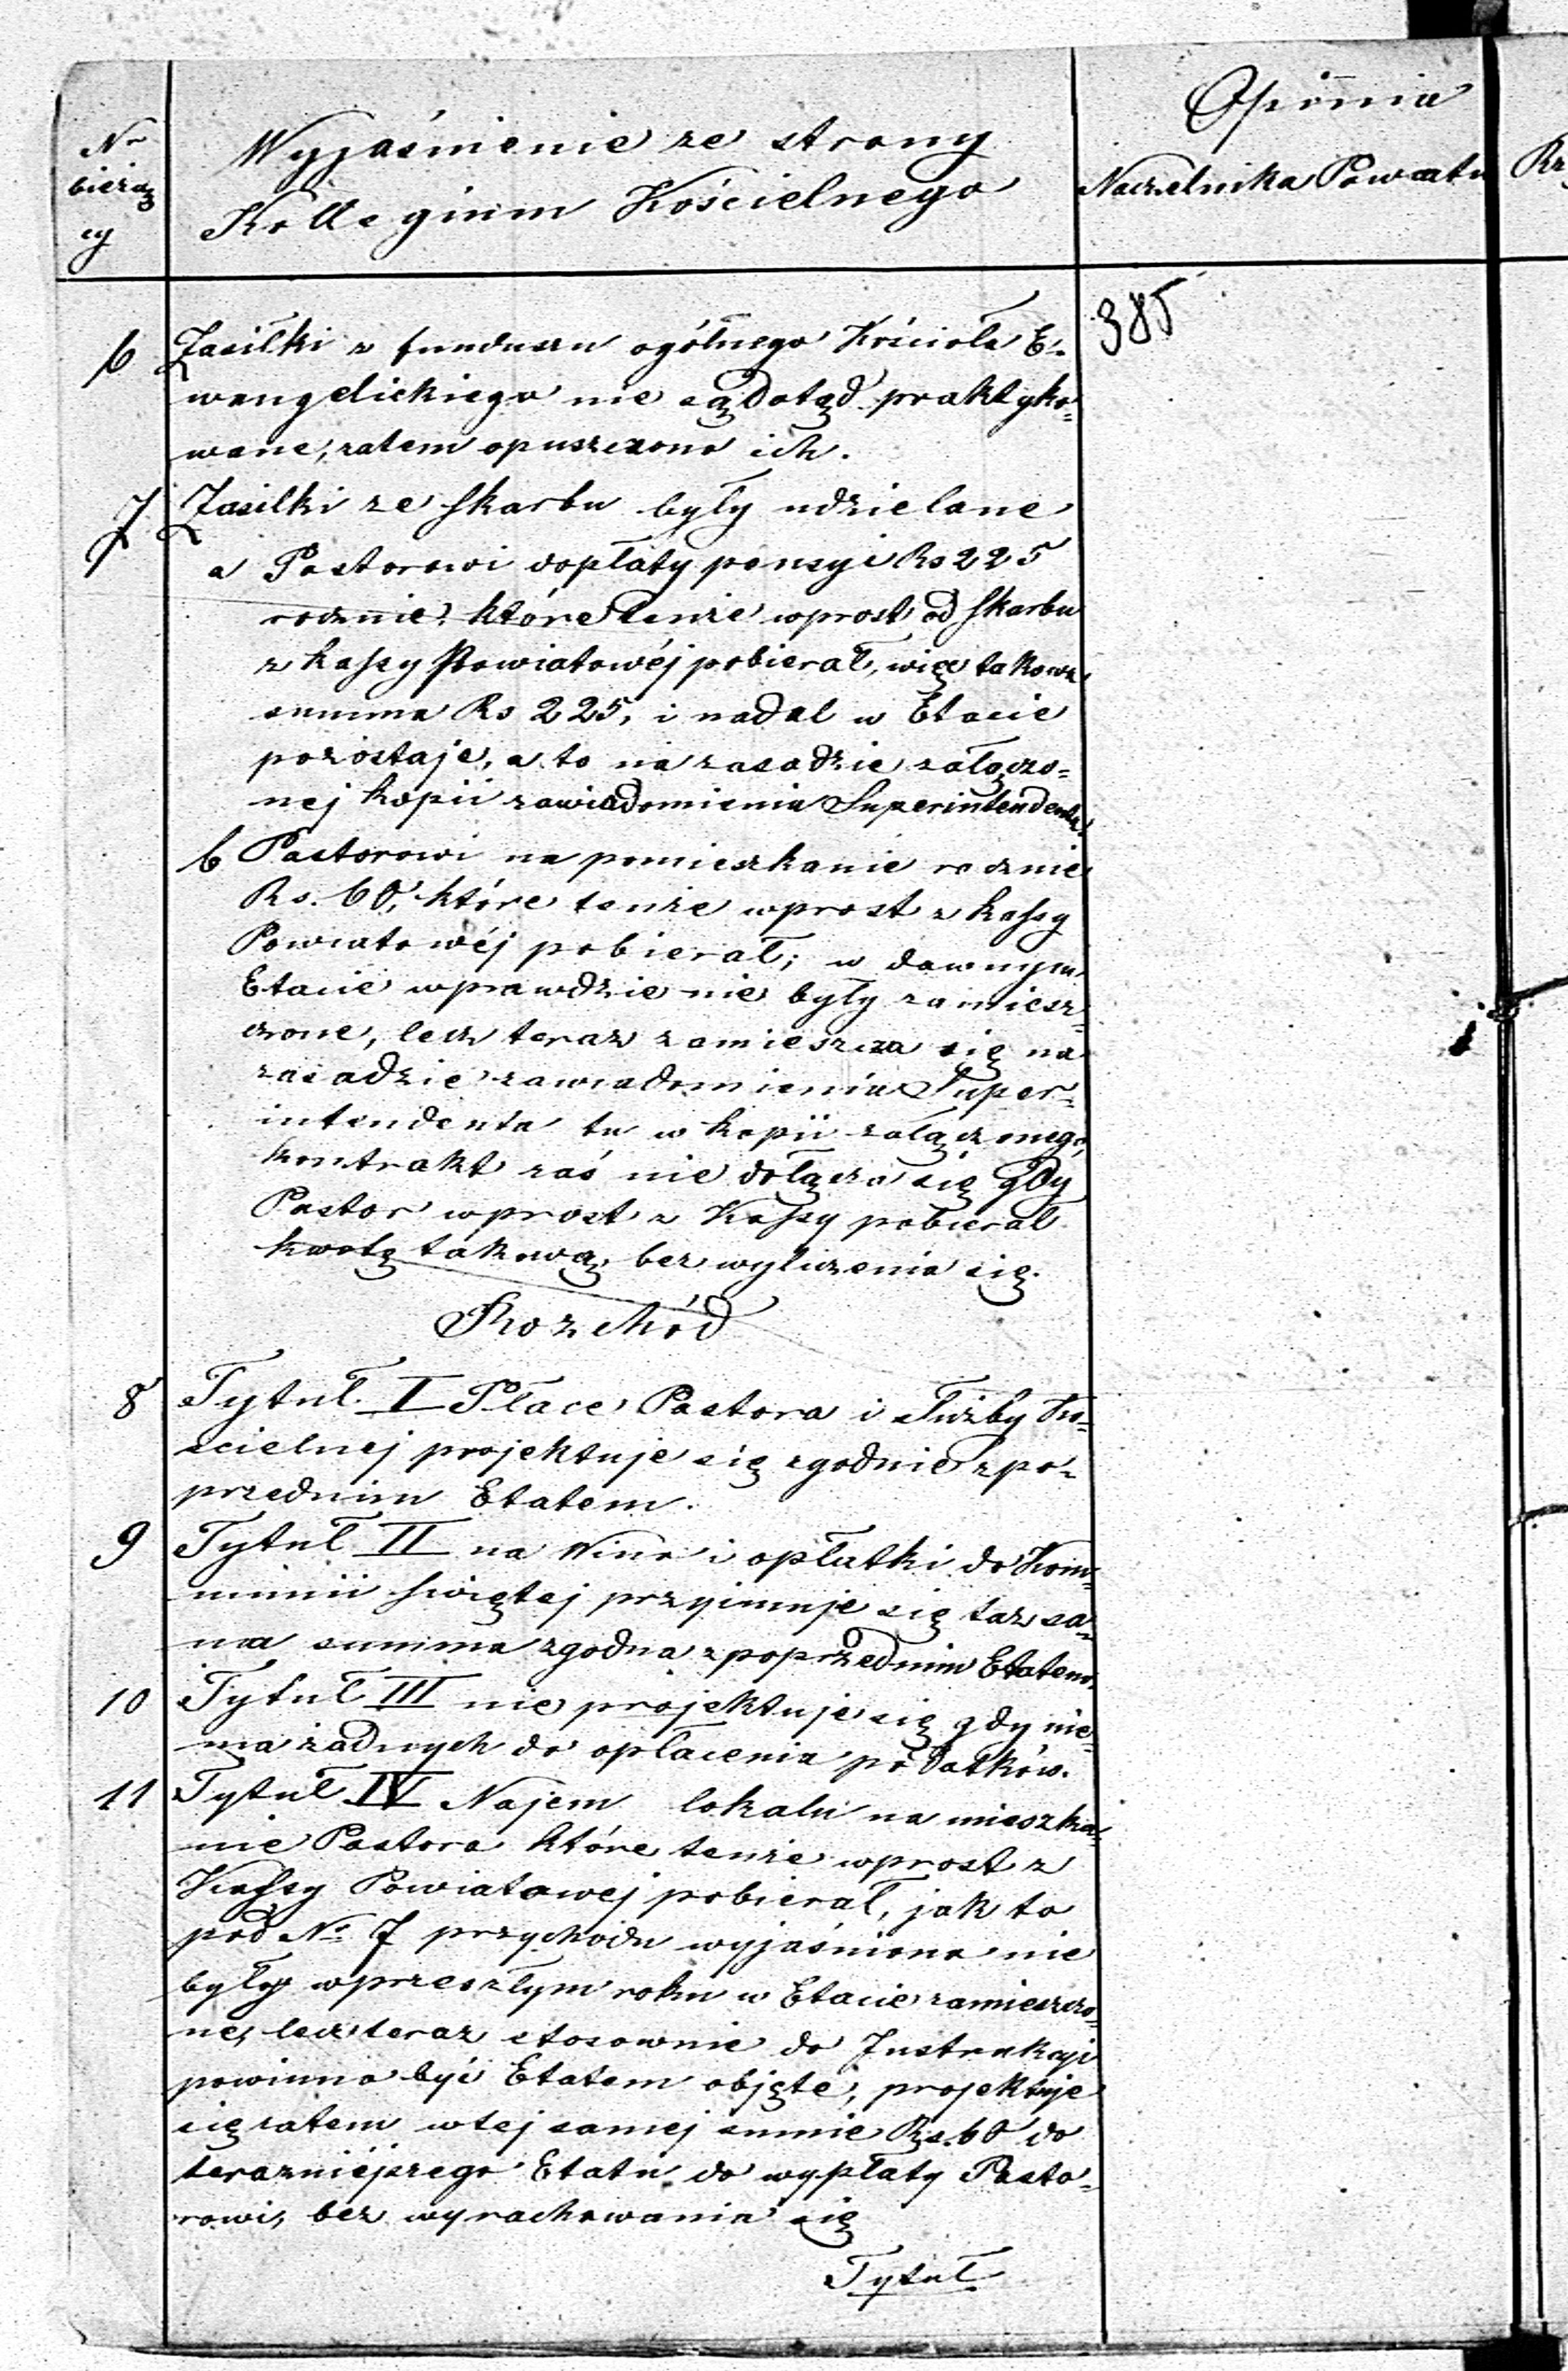 Opinia
Nr
bieżąc
cy
Wyjaśnienie ze strony
Kollegium Kościelnego
Naczelnika Powiatu
Rz
385
6 Zasiłki z funduszu ogólnego Kościoła E-
wangelickiego nie są dotąd praktyko-
wane, zatem opuszczono ich.
7 Zasiłki ze skarbu były udzielane
a Pastorowi dopłaty pensyi Rs 225
rocznie, które tenże wprost od skarbu
z kassy Powiatowéj pobierał, więc takowa
summa Rs 225, i nadal w Etacie
pozostaje, a to na zasadzie załączo=
nej kopii zawiadomienia Superintendenta.
b Pastorowi na pomieszkanie rocznie
Rs. 60, które tenże wprost z kassy
Powiatowéj pobierał; w dawnym
Etacie wprawdzie nie były zamiesz-
czone, lecz teraz zamieszcza się na
zasadzie zawiadomienia Super-
intendenta tu w kopii załączonego,
kontrakt zaś nie dołącza się gdy
Pastor wprost z Kassy pobierał
kwotę takową, bez wyliczenia się.
Rozchód
8 Tytuł I Płace Pastora i służby Ko-
ścielnej projektuje się zgodnie z po-
przednim Etatem.
9 Tytuł II na Wino i opłatki do Kom-
munii świętej przyimuje się taż sa-
ma summa zgodna z poprzednim Etatem.
10 Tytuł III nie projektuje się gdy nie-
ma żadnych do opłacenia podatków.
11 Tytuł IV Najem lokalu na mieszka-
nie Pastora które tenże wprost z
Kassy Powiatowej pobierał, jak to
pod No 7 przychodu wyjaśniono nie
były w przeszłym roku w Etacie zamieszczo-
ne, lecz teraz stosownie do Instrukcyi
powinno być Etatem objęte, projektuje
się zatem w tej samej summie Rs. 60 do
teraźniéjszego Etatu do wypłaty Pasto-
rowi, bez wyrachowania się
Tytuł